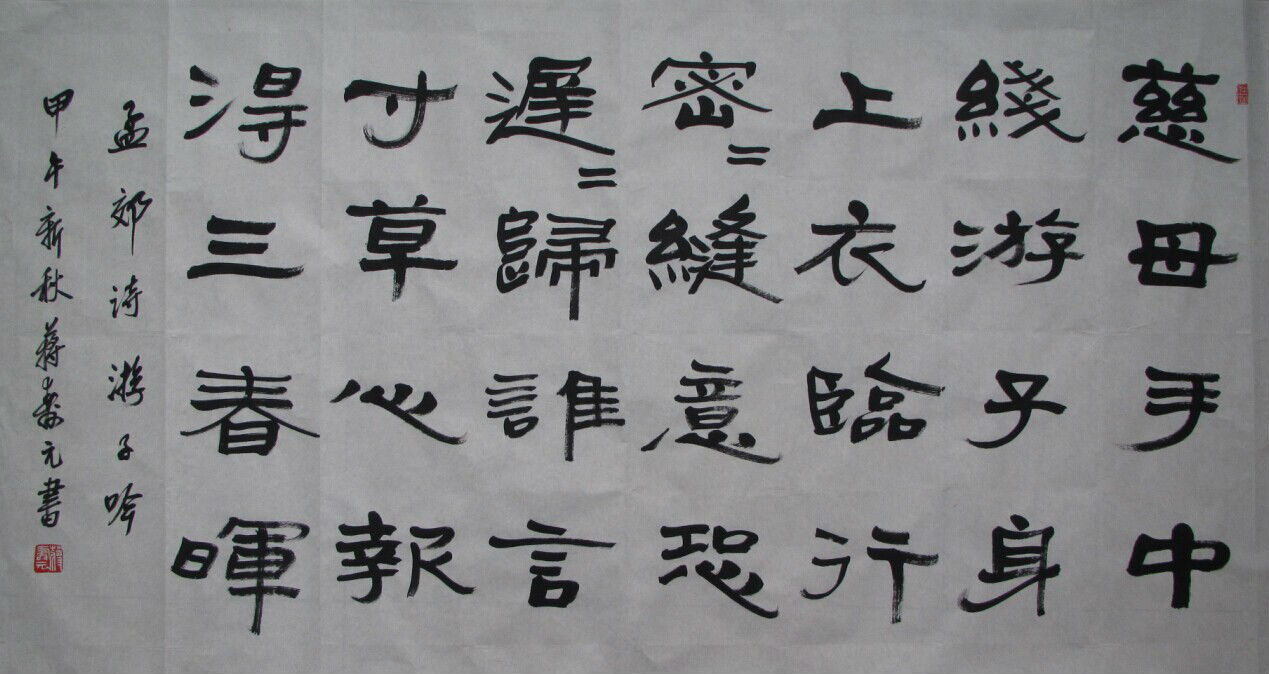 慈母手中
綫游子身
上衣臨行
密〻縫意恐
遲〻歸誰言
寸草心報
得三春暉
孟郊诗游子吟
甲午新秋蔣壽元書